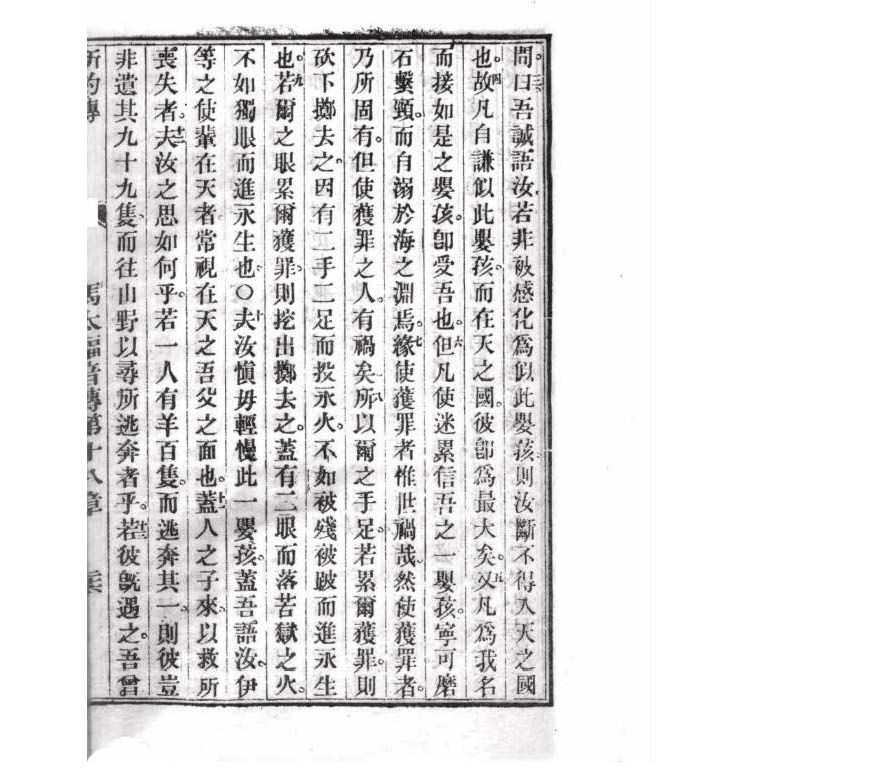 間曰。三吾誠語汝若非被感化爲似此嬰孩。則汝斷不得入天之國
也。四故凡自謙似此嬰孩。而在天之國。彼卽爲最大矣。五又凡爲我名
而接如是之嬰孩。卽受吾也。六但凡使迷累信吾之一嬰孩。寧可磨
石繫頸。而自溺於海之淵焉。七緣使獲罪者惟世禍哉。然使獲罪者。
乃所固有。但使獲罪之人。有禍矣。八所以爾之手足。若累爾獲罪。則
砍下擲去之。因有二手二足而投永火。不如被殘被跛而進永生
也。九若爾之眼累爾獲罪。則挖出擲去之。蓋有二眼而落苦獄之火。
不如獨眼而進永生也。〇十夫汝愼毋輕慢此一嬰孩。蓋吾語汝。伊
等之使輩在天者。常視在天之吾父之面也。十一蓋人之子來。以救所
喪失者。十二夫汝之思如何乎。若一人有羊百隻。而逃奔其一。則彼豈
非遺其九十九隻。而往山野以尋所逃奔者乎。十三若彼旣遇之。吾曾
馬太福音傳第十八章